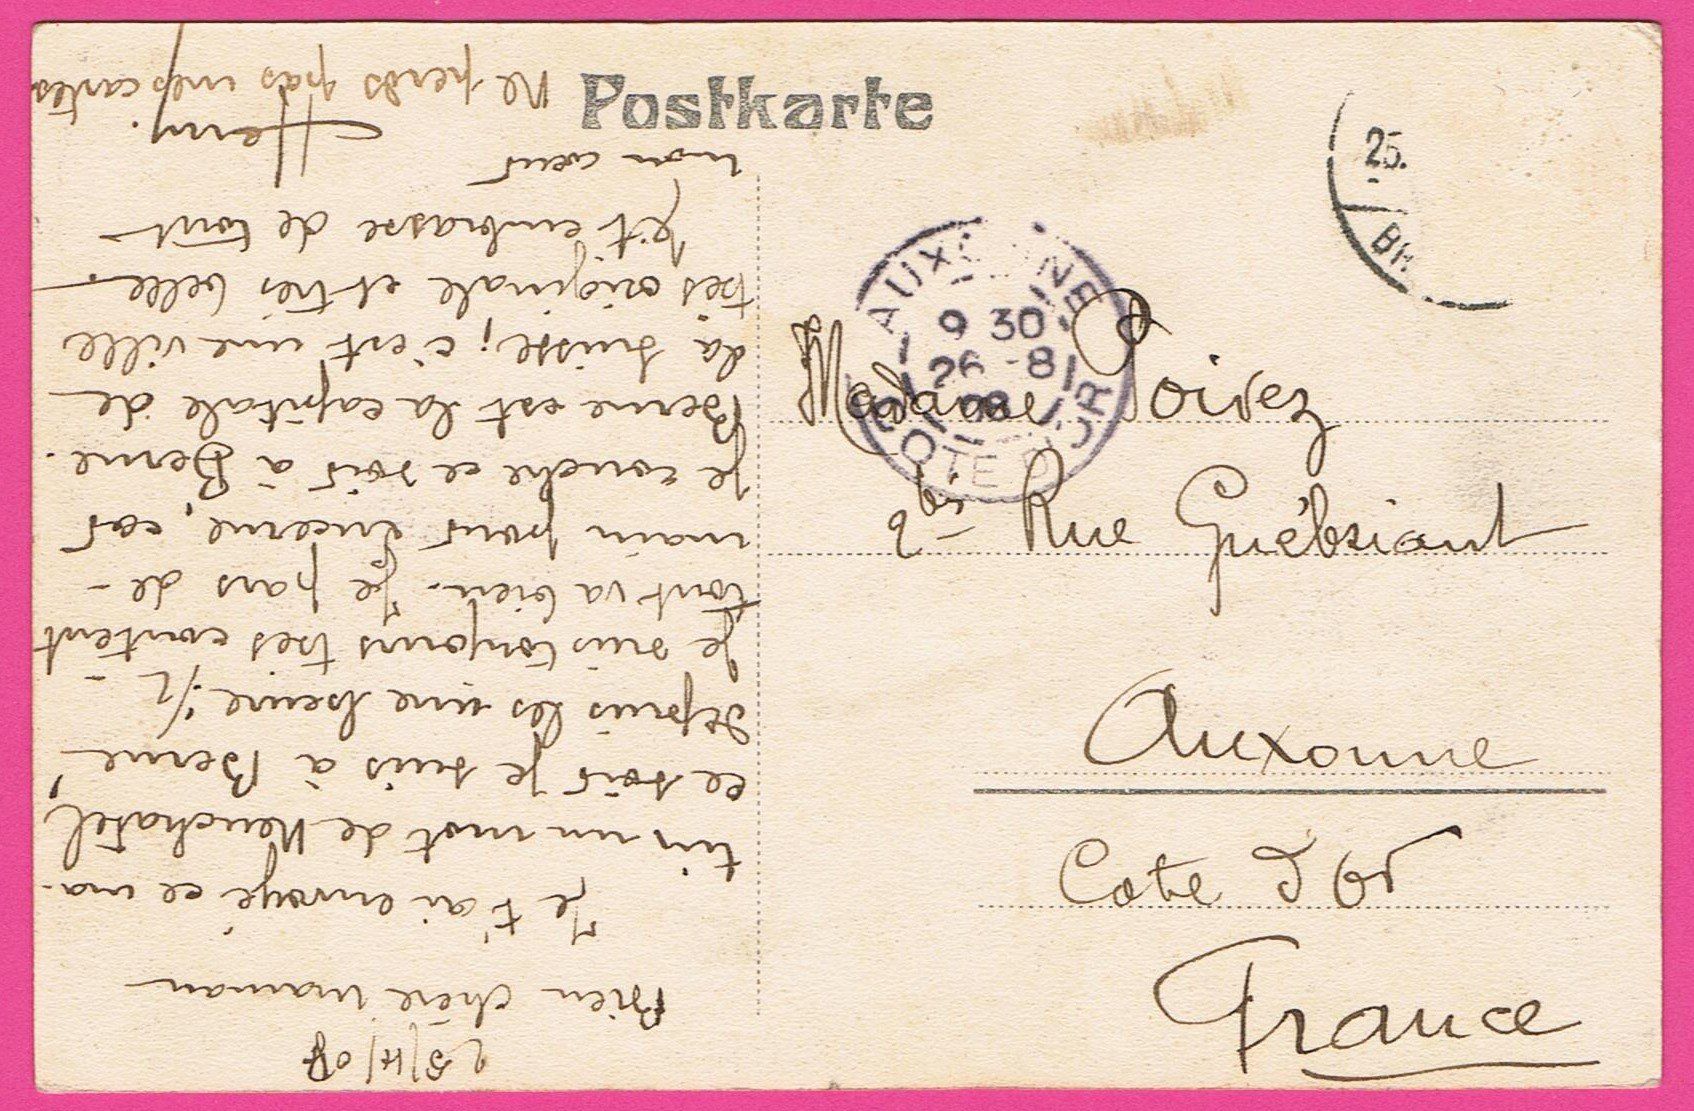 Postkarte
25.
AUXONNE
9 30
26 - 8
08
COTE D'OR
Madame Poirez
2bis Rue Guébriant
Auxonne
Cote d'Or
France
Bien chère maman
Je t'ai envoyé ce ma-
tin un mot de Neuchatel,
ce soir je suis à Berne
depuis les une heure 1/2
Je suis toujours très content
tout va bien. Je pars de-
main pour Lucerne, car
je couche ce soir à Berne.
Berne est la capitale de
la Suisse; c'est une ville
très originale et très belle.
Je t'embrasse de tout
mon cœur
Henry.
Ne perds pas mes cartes